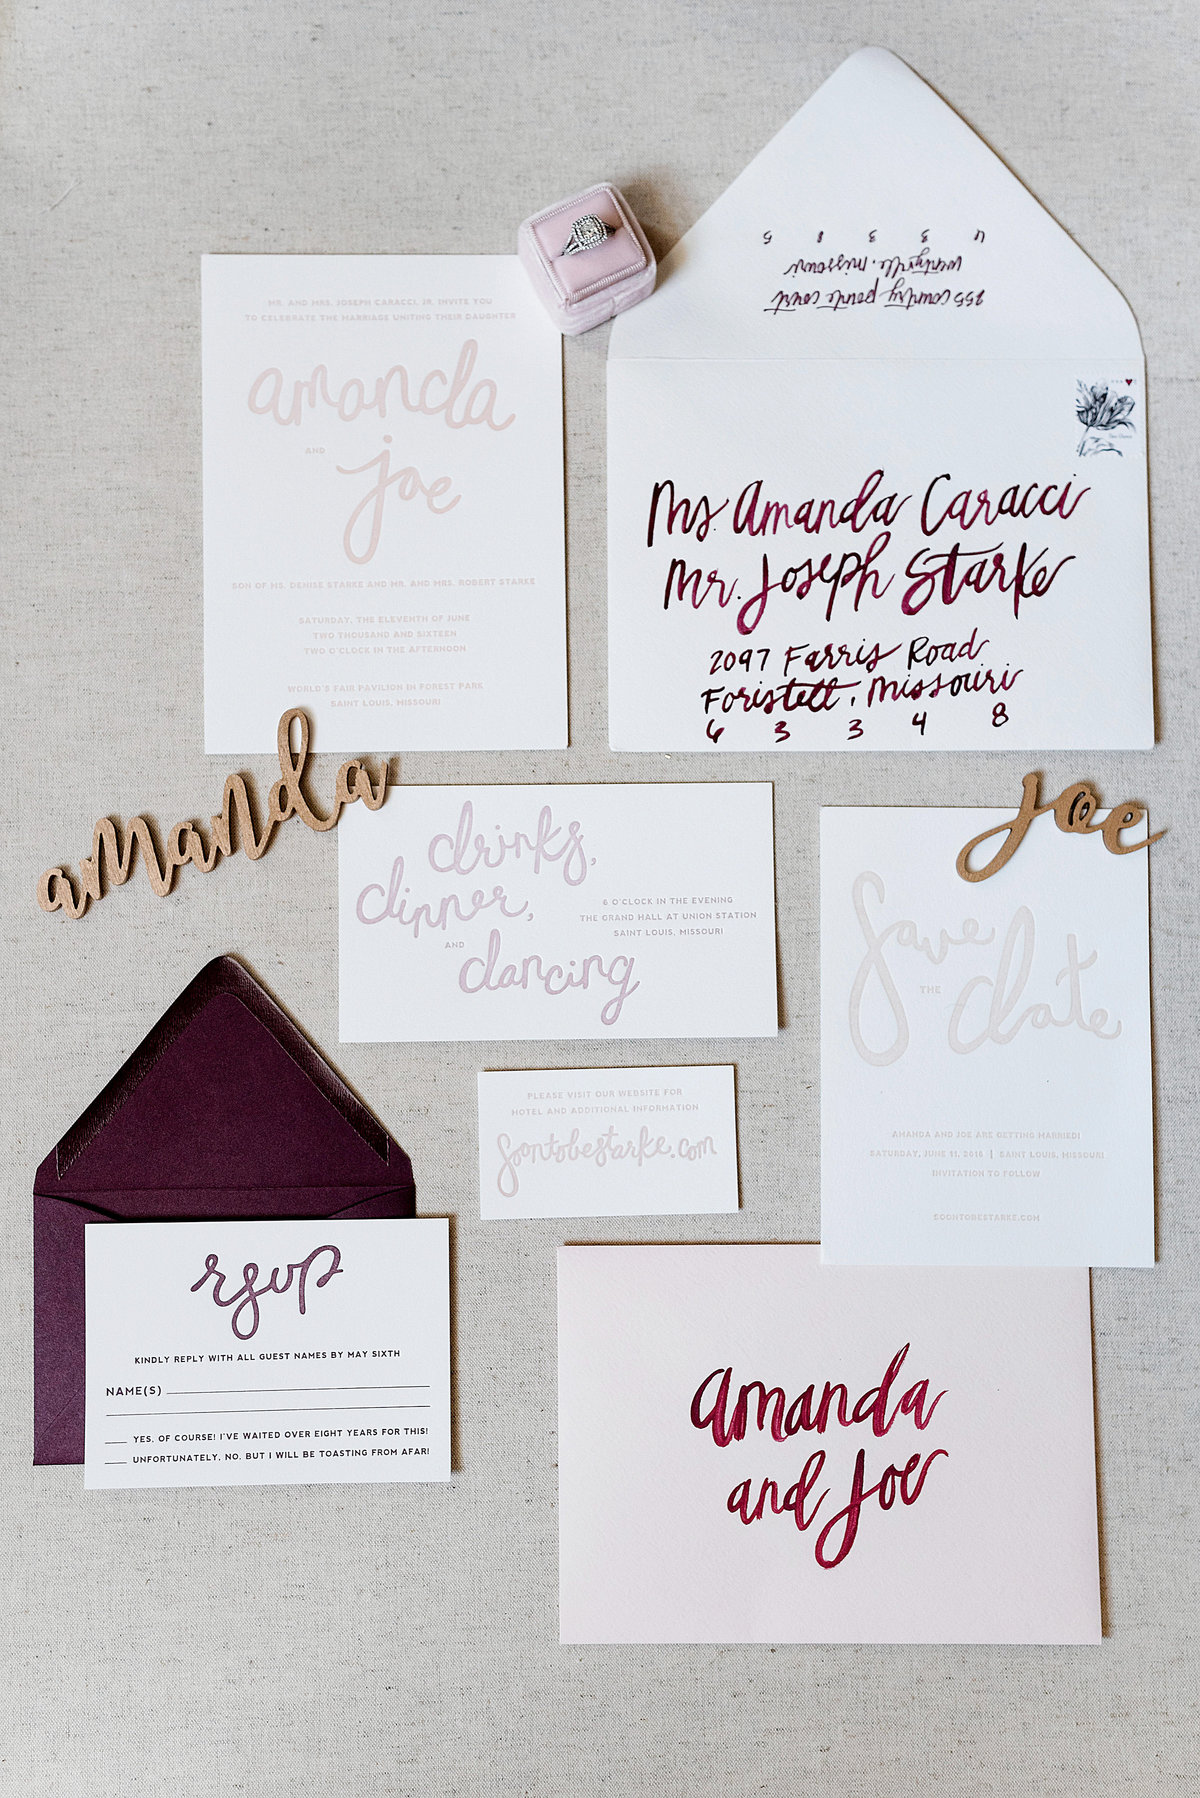 MR. AND MRS. JOSEPH CARACCI, JR. INVITE YOU
TO CELEBRATE THE MARRIAGE UNITING THEIR DAUGHTER
amanda
AND
joe
SON OF MS. DENISE STARKE AND MR. AND MRS. ROBERT STARKE
SATURDAY, THE ELEVENTH OF JUNE
TWO THOUSAND AND SIXTEEN
TWO O'CLOCK IN THE AFTERNOON
WORLD'S FAIR PAVILION IN FOREST PARK
SAINT LOUIS, MISSOURI
255 country pointe court
wentzville, missouri
6 3 3 8 5
Ms. Amanda Caracci
Mr. Joseph Starke
2097 Farris Road
Foristell, Missouri
6 3 3 4 8
amanda
joe
drinks,
dinner,
AND
dancing
6 O'CLOCK IN THE EVENING
THE GRAND HALL AT UNION STATION
SAINT LOUIS, MISSOURI
save
THE
date
AMANDA AND JOE ARE GETTING MARRIED!
SATURDAY, JUNE 11, 2016 | SAINT LOUIS, MISSOURI
INVITATION TO FOLLOW
SOONTOBESTARKE.COM
PLEASE VISIT OUR WEBSITE FOR
HOTEL AND ADDITIONAL INFORMATION
soontobestarke.com
rsvp
KINDLY REPLY WITH ALL GUEST NAMES BY MAY SIXTH
NAME(S)
YES, OF COURSE! I'VE WAITED OVER EIGHT YEARS FOR THIS!
UNFORTUNATELY, NO. BUT I WILL BE TOASTING FROM AFAR!
amanda
and Joe